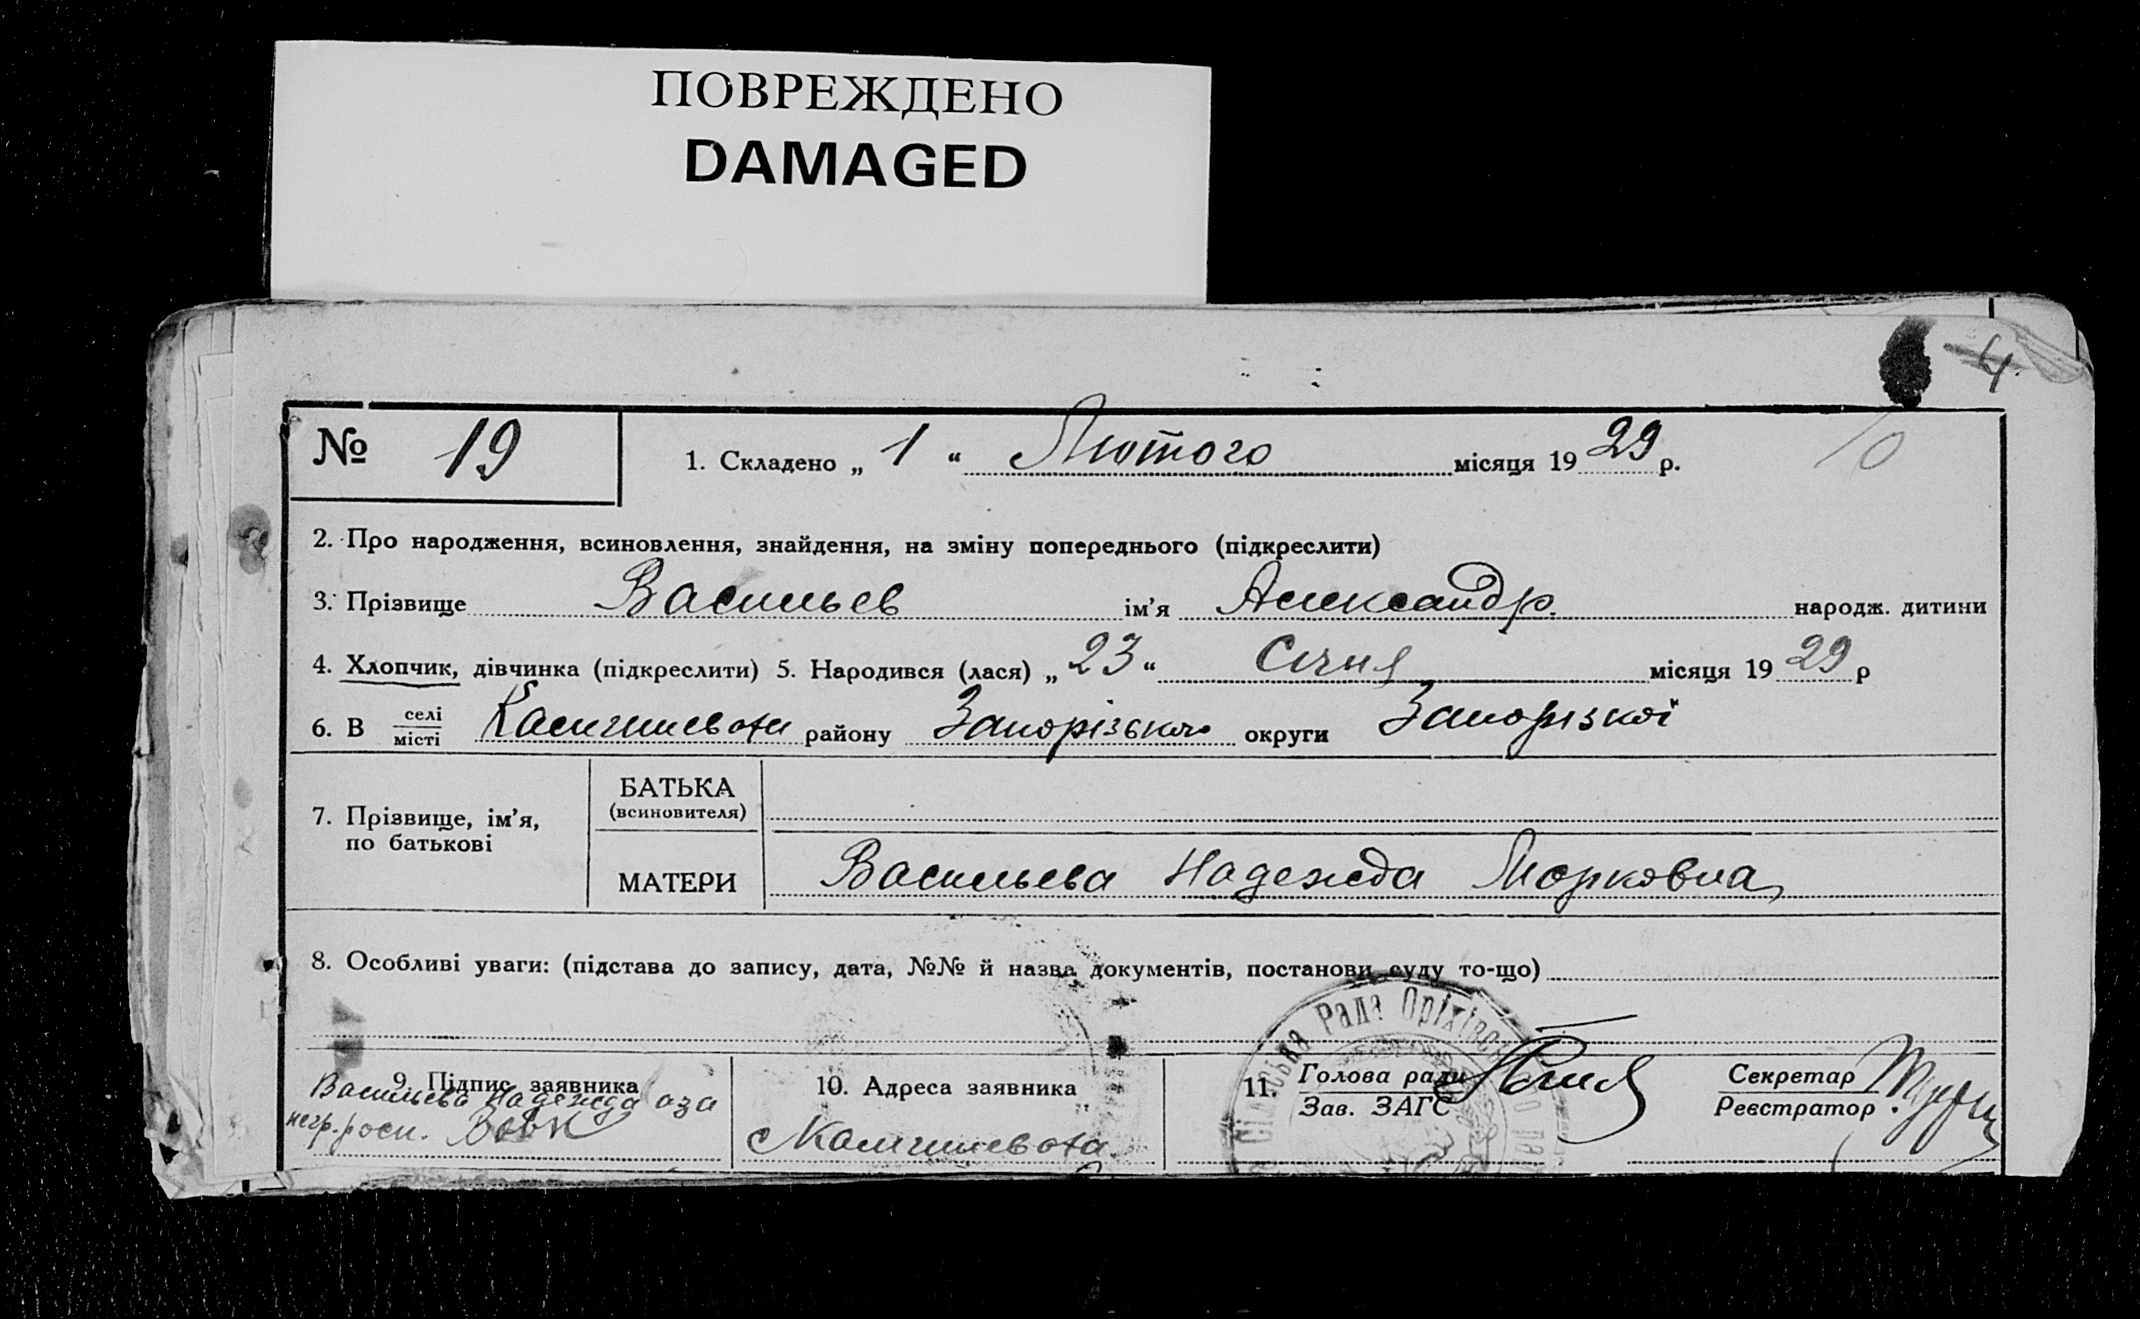 ПОВРЕЖДЕНО
DAMAGED
4
№ 19
1. Складено „ 1 “ Лютого місяця 1929 р.
10
2. Про народження, всиновлення, знайдення, на зміну попереднього (підкреслити)
3. Прізвище Васильев ім’я Александр. народж. дитини
4. Хлопчик, дівчинка (підкреслити) 5. Народився (лася) „ 23 “ Січня місяця 1929 р
6. В селі місті району Запорізького округи Запорізкої
7. Прізвище, ім’я, по батькові
БАТЬКА
(всиновителя)
МАТЕРИ Васильева Надежда Морковна
8. Особливі уваги: (підстава до запису, дата, №№ й назва документів, постанови суду то-що)
Рада Оріхівсь
9. Підпис заявника
Васильева Надежда аза
негр. росп.
10. Адреса заявника
11. Голова ради
Зав. ЗАГС
Секретар
Реєстратор